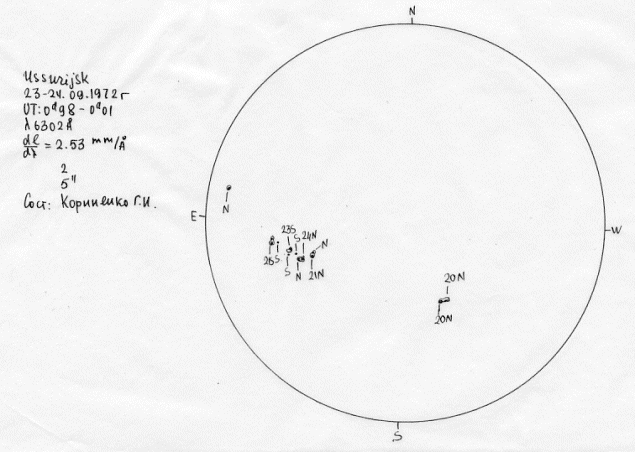 Ussurijsk
23-24.09.1972г
UT: 0ᵈ98 - 0ᵈ01
λ 6302Å
dl/dλ = 2.53 mm/Å
2
5"
Сост: Корниенко Г.И.
N
N
E
W
23S
S 24N
N
26S S
S
N
21N
20N
20N
S